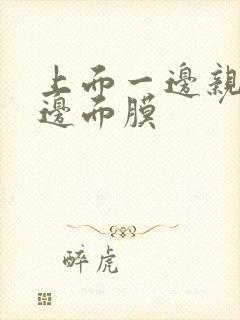 上而一邊親
邊而膜
醉虎